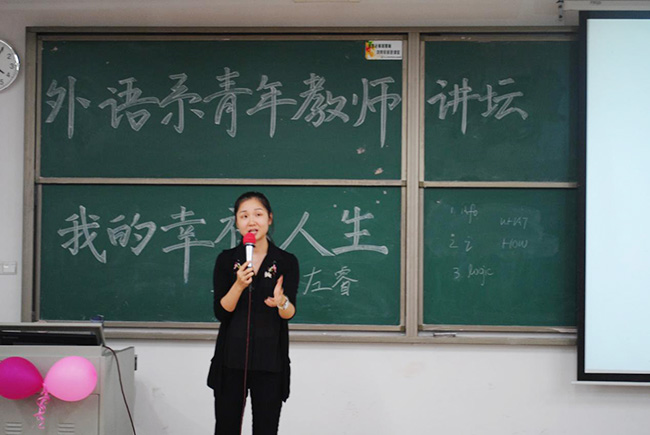 外语系青年教师 讲坛
我的幸福人生
左睿
1. info what?
2. How
3. logic